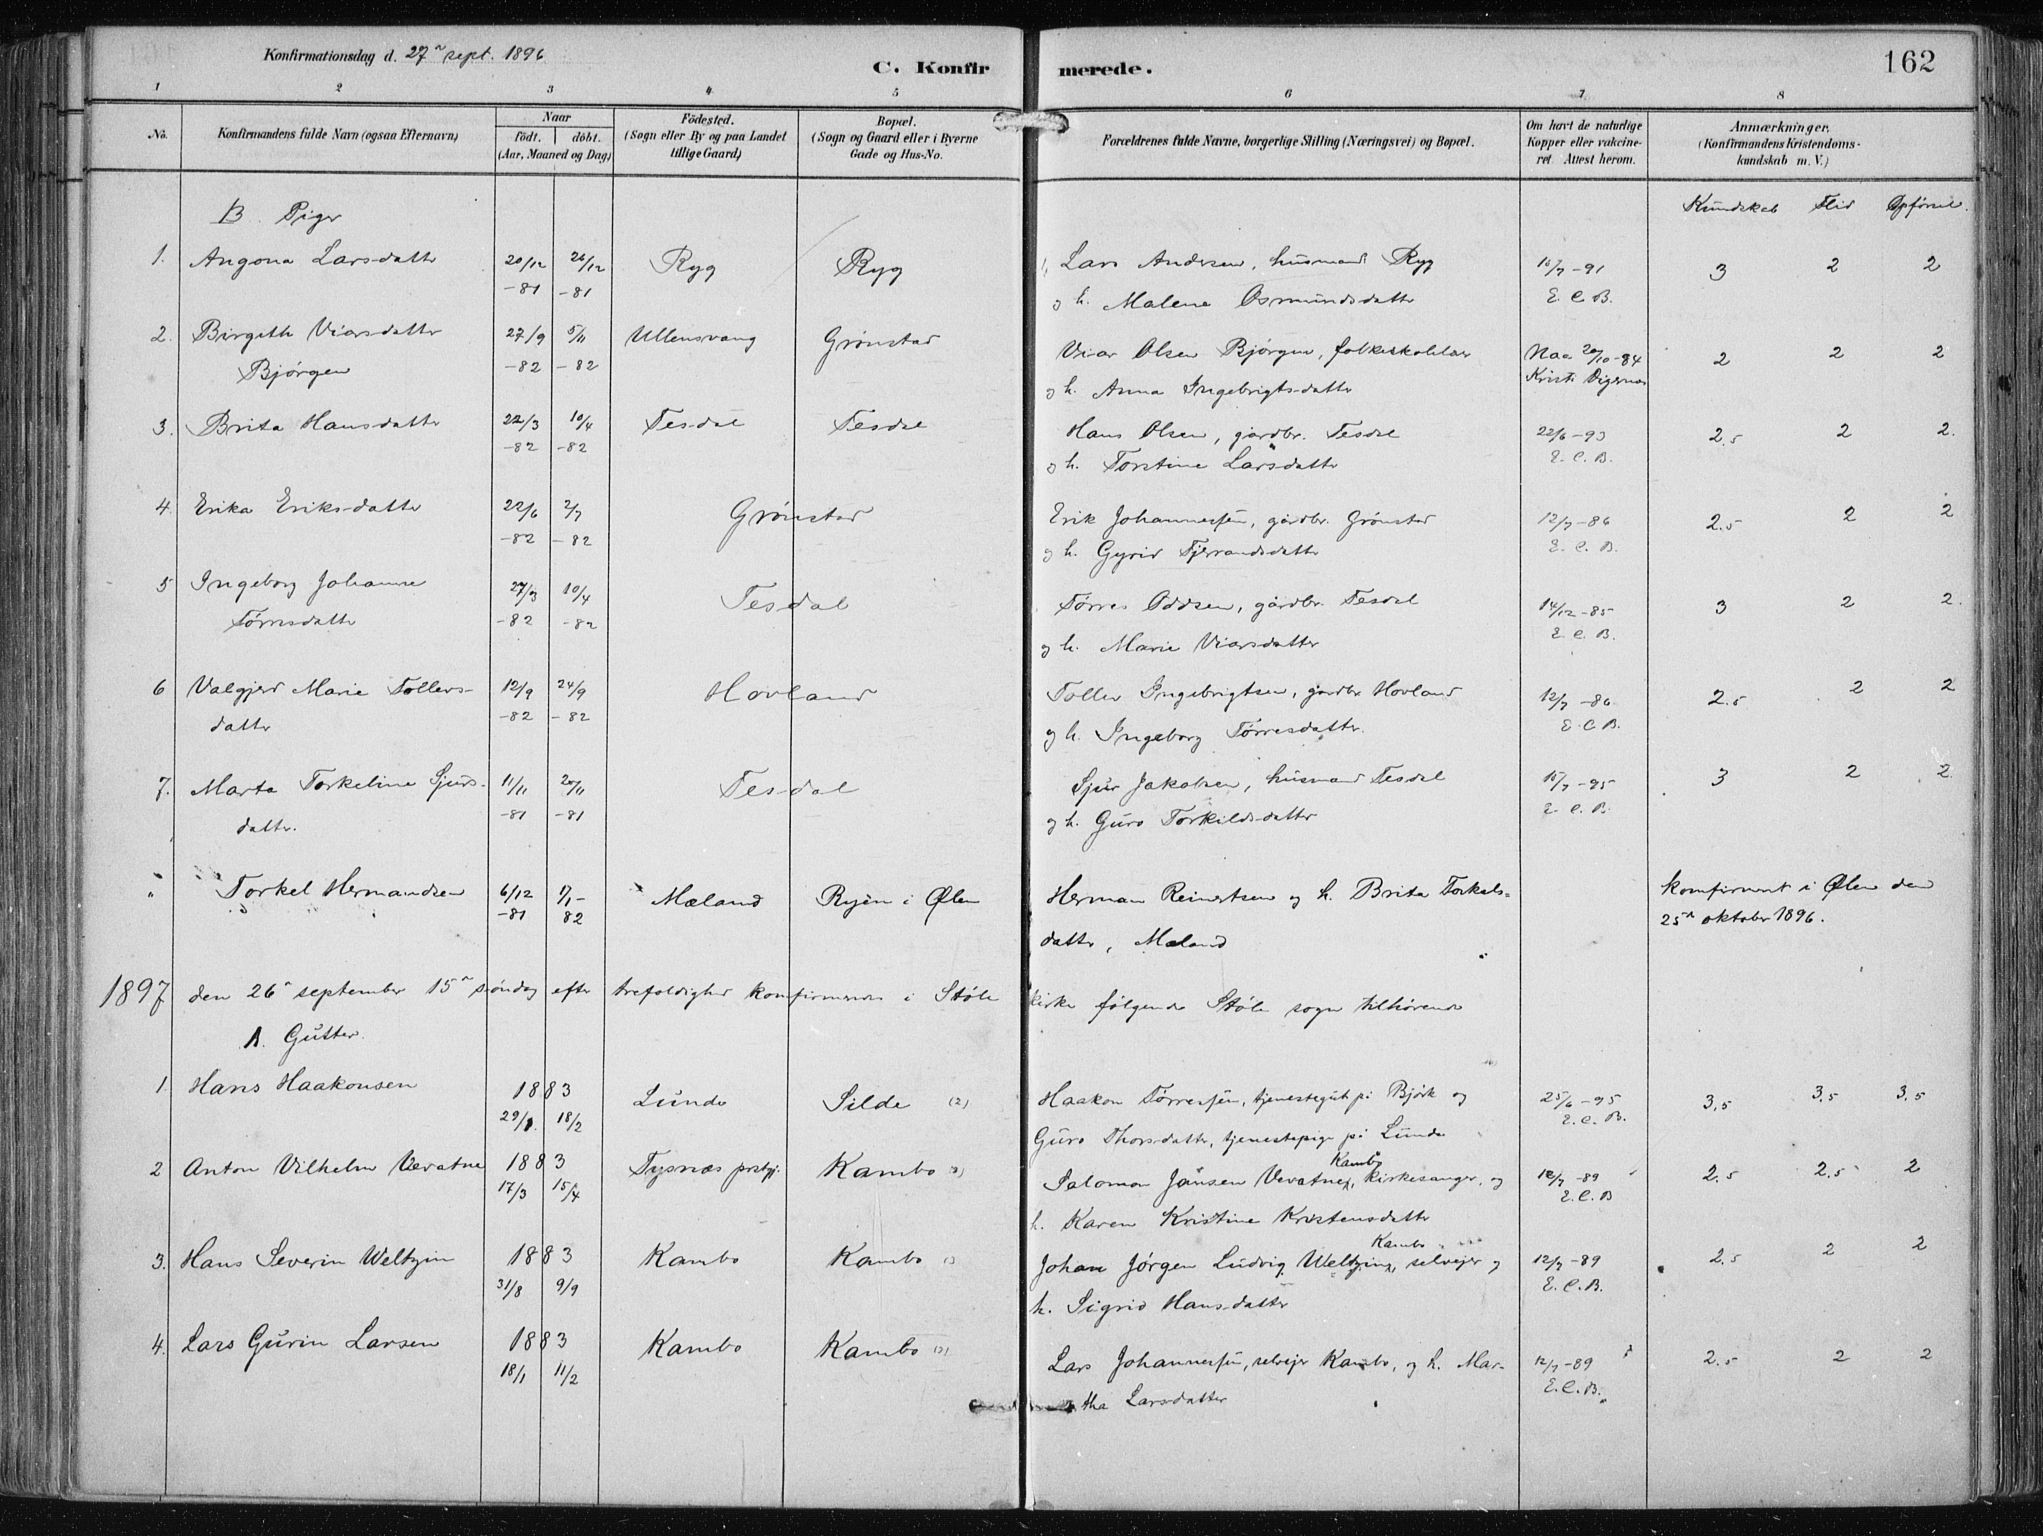 Konfirmationsdag d. 27n sept. 1896
C. Konfirmerede.
162
1 2 3 4 5 6 7 8
No. Konfirmandens fulde Navn (ogsaa Efternavn)
Naar født. døbt. (Aar, Maaned og Dag)
Födested. (Sogn eller By og paa Landet tillige Gaard)
Bopæl. (Sogn og Gaard eller i Byerne Gade og Hus-No.
Forældrenes fulde Navne, borgerlige Stilling (Næringsvei) og Bopæl.
Om havt de naturlige Kopper eller vakcineret. Attest herom.
Anmærkninger. (Konfirmandens Kristendomskundskab m. V.)
B. Piger
Kundskab Flid Opførsel.
1. Angona Larsdatter 20/12 -81 26/12 -81 Ryg Ryg
Lars Andersen, husmand Ryg
og h. Malene Osmundsdatter
15/7 -91 E. C. B. 3 2 2
2. Birgith Viarsdatter Bjørgen 27/9 -82 5/11 -82 Ullensvang Grønstad
Viar Olsen Bjørgen, folkeskolelær
og h. Anna Ingebrigtsdatter
Naa 20/10 -84 Kristi Digernes 2 2 2
3. Brita Hansdatter 22/3 -82 10/4 -82 Tesdal Tesdal
Hans Olsen, gårdbr. Tesdal
og h. Torstine Larsdatter
22/6 -93 E. C. B. 2.5 2 2.
4. Erika Eriksdatter 22/6 -82 2/7 -82 Grønstad
Erik Johannessen, gårdbr. Grønstad
og h. Gyrid Tjerrandsdatter
12/7 -86 E. C. B. 2.5 2 2
5 Ingeborg Johanne Tørresdatter 27/3 -82 10/4 -82 Tesdal
Tørres Oddsen, gårdbr. Tesdal
og h. Marie Viarsdatter
14/12 -85 E. C. B. 3 2 2.
6 Valgjerd Marie Tollevsdatter 12/9 -82 24/9 -82 Hovland
Tollev Ingebrigtsen, gårdbr Hovland
og h. Ingeborg Tørresdatter.
12/7 -86 E. C. B. 2.5 2 2
7. Marta Torkeline Sjursdatter. 11/11 -81 20/11 -81 Tesdal
Sjur Jakobsen, husmand Tesdal
og h. Guro Torkildsdatter
15/7 -95 E. C. B. 3 2 2
" Torkel Hermandsen 6/12 -81 1/1 -82 Mæland Ryen i Ølen
Herman Reinertsen og h. Brita Torkelsdatter, Mæland
konfirmert i Ølen den
25n oktober 1896.
1897 den 26n september 15n søndag efter trefoldighed konfirmeredes i Støle kirke følgende Støle sogn tilhørende
A. Gutter.
1. Hans Haakonsen 1883 29/1. 18/2 Lunde Silde (2)
Haakon Tørressen, tjenestegut på Bjørk og
Guro Thorsdatter, tjenestepige på Lunde
25/6 -95 E. C. B. 3,5 3,5 3,5
2 Anton Vilhelm Vevatne 1883 17/3 15/4 Tysnæs prstgj. Kambo (3)
Salomon Jansen Vevatne, Kambo, kirkesanger, og
h. Karen Kristine Kristensdatter
12/7 -89 E. C. B 2.5 2.5 2
3. Hans Severin Weltzin 1883 31/8 9/9 Kambo Kambo
Johan Jørgen Ludvig Weltzin, Kambo selveier og
h. Sigrid Hansdatter
12/7 -89 E. C. B. 2.5 2 2
4. Lars Gurin Larsen 1883 18/1 11/2 Kambo Kambo (3)
Lars Johannessen, selvejer Kambo, og h. Martha Larsdatter
12/7 -89 E. C. B. 2.5 2 2